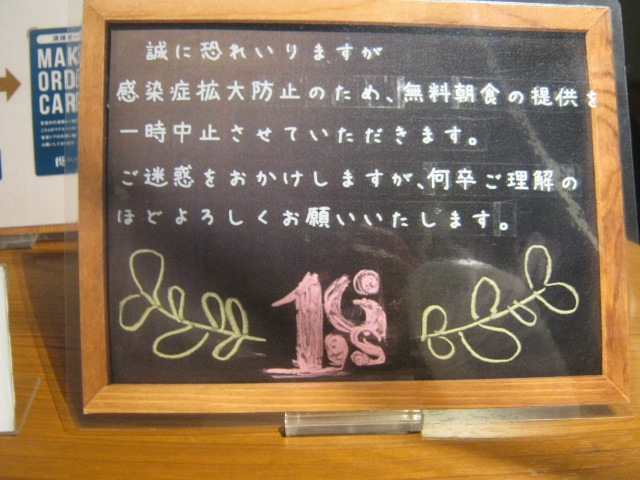 誠に恐れいりますが
感染症拡大防止のため、無料朝食の提供を
一時中止させていただきます。
ご迷惑をおかけしますが、何卒ご理解の
ほどよろしくお願いいたします。
MAK
ORD
CAR